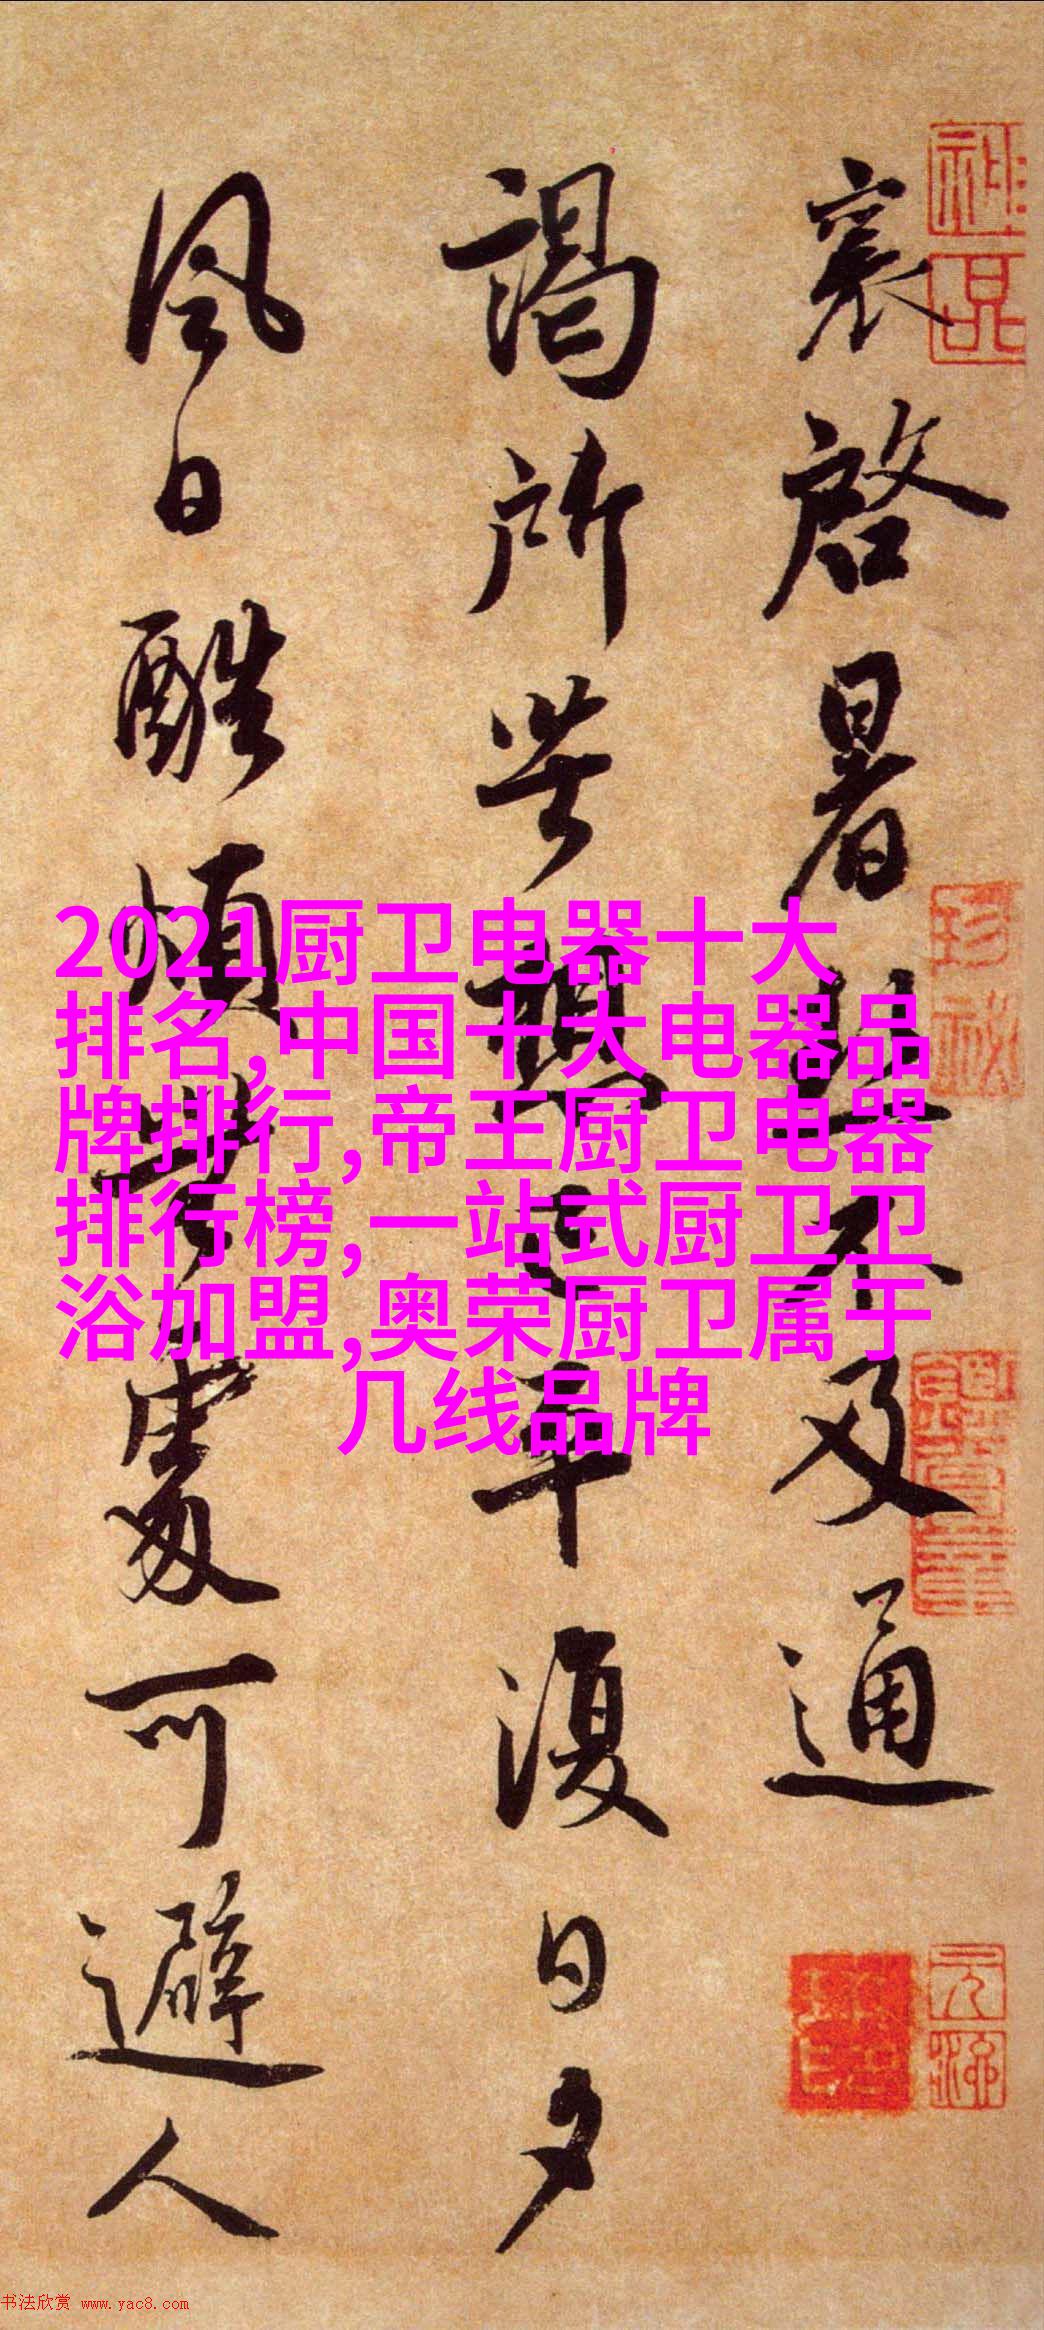 襄啓暑熱不及通
謁所苦想已平復日夕
風日酷煩無處可避人
2021厨卫电器十大
排名,中国十大电器品
牌排行,帝王厨卫电器
排行榜,一站式厨卫卫
浴加盟,奥荣厨卫属于
几线品牌
书法欣赏 www.yac8.com